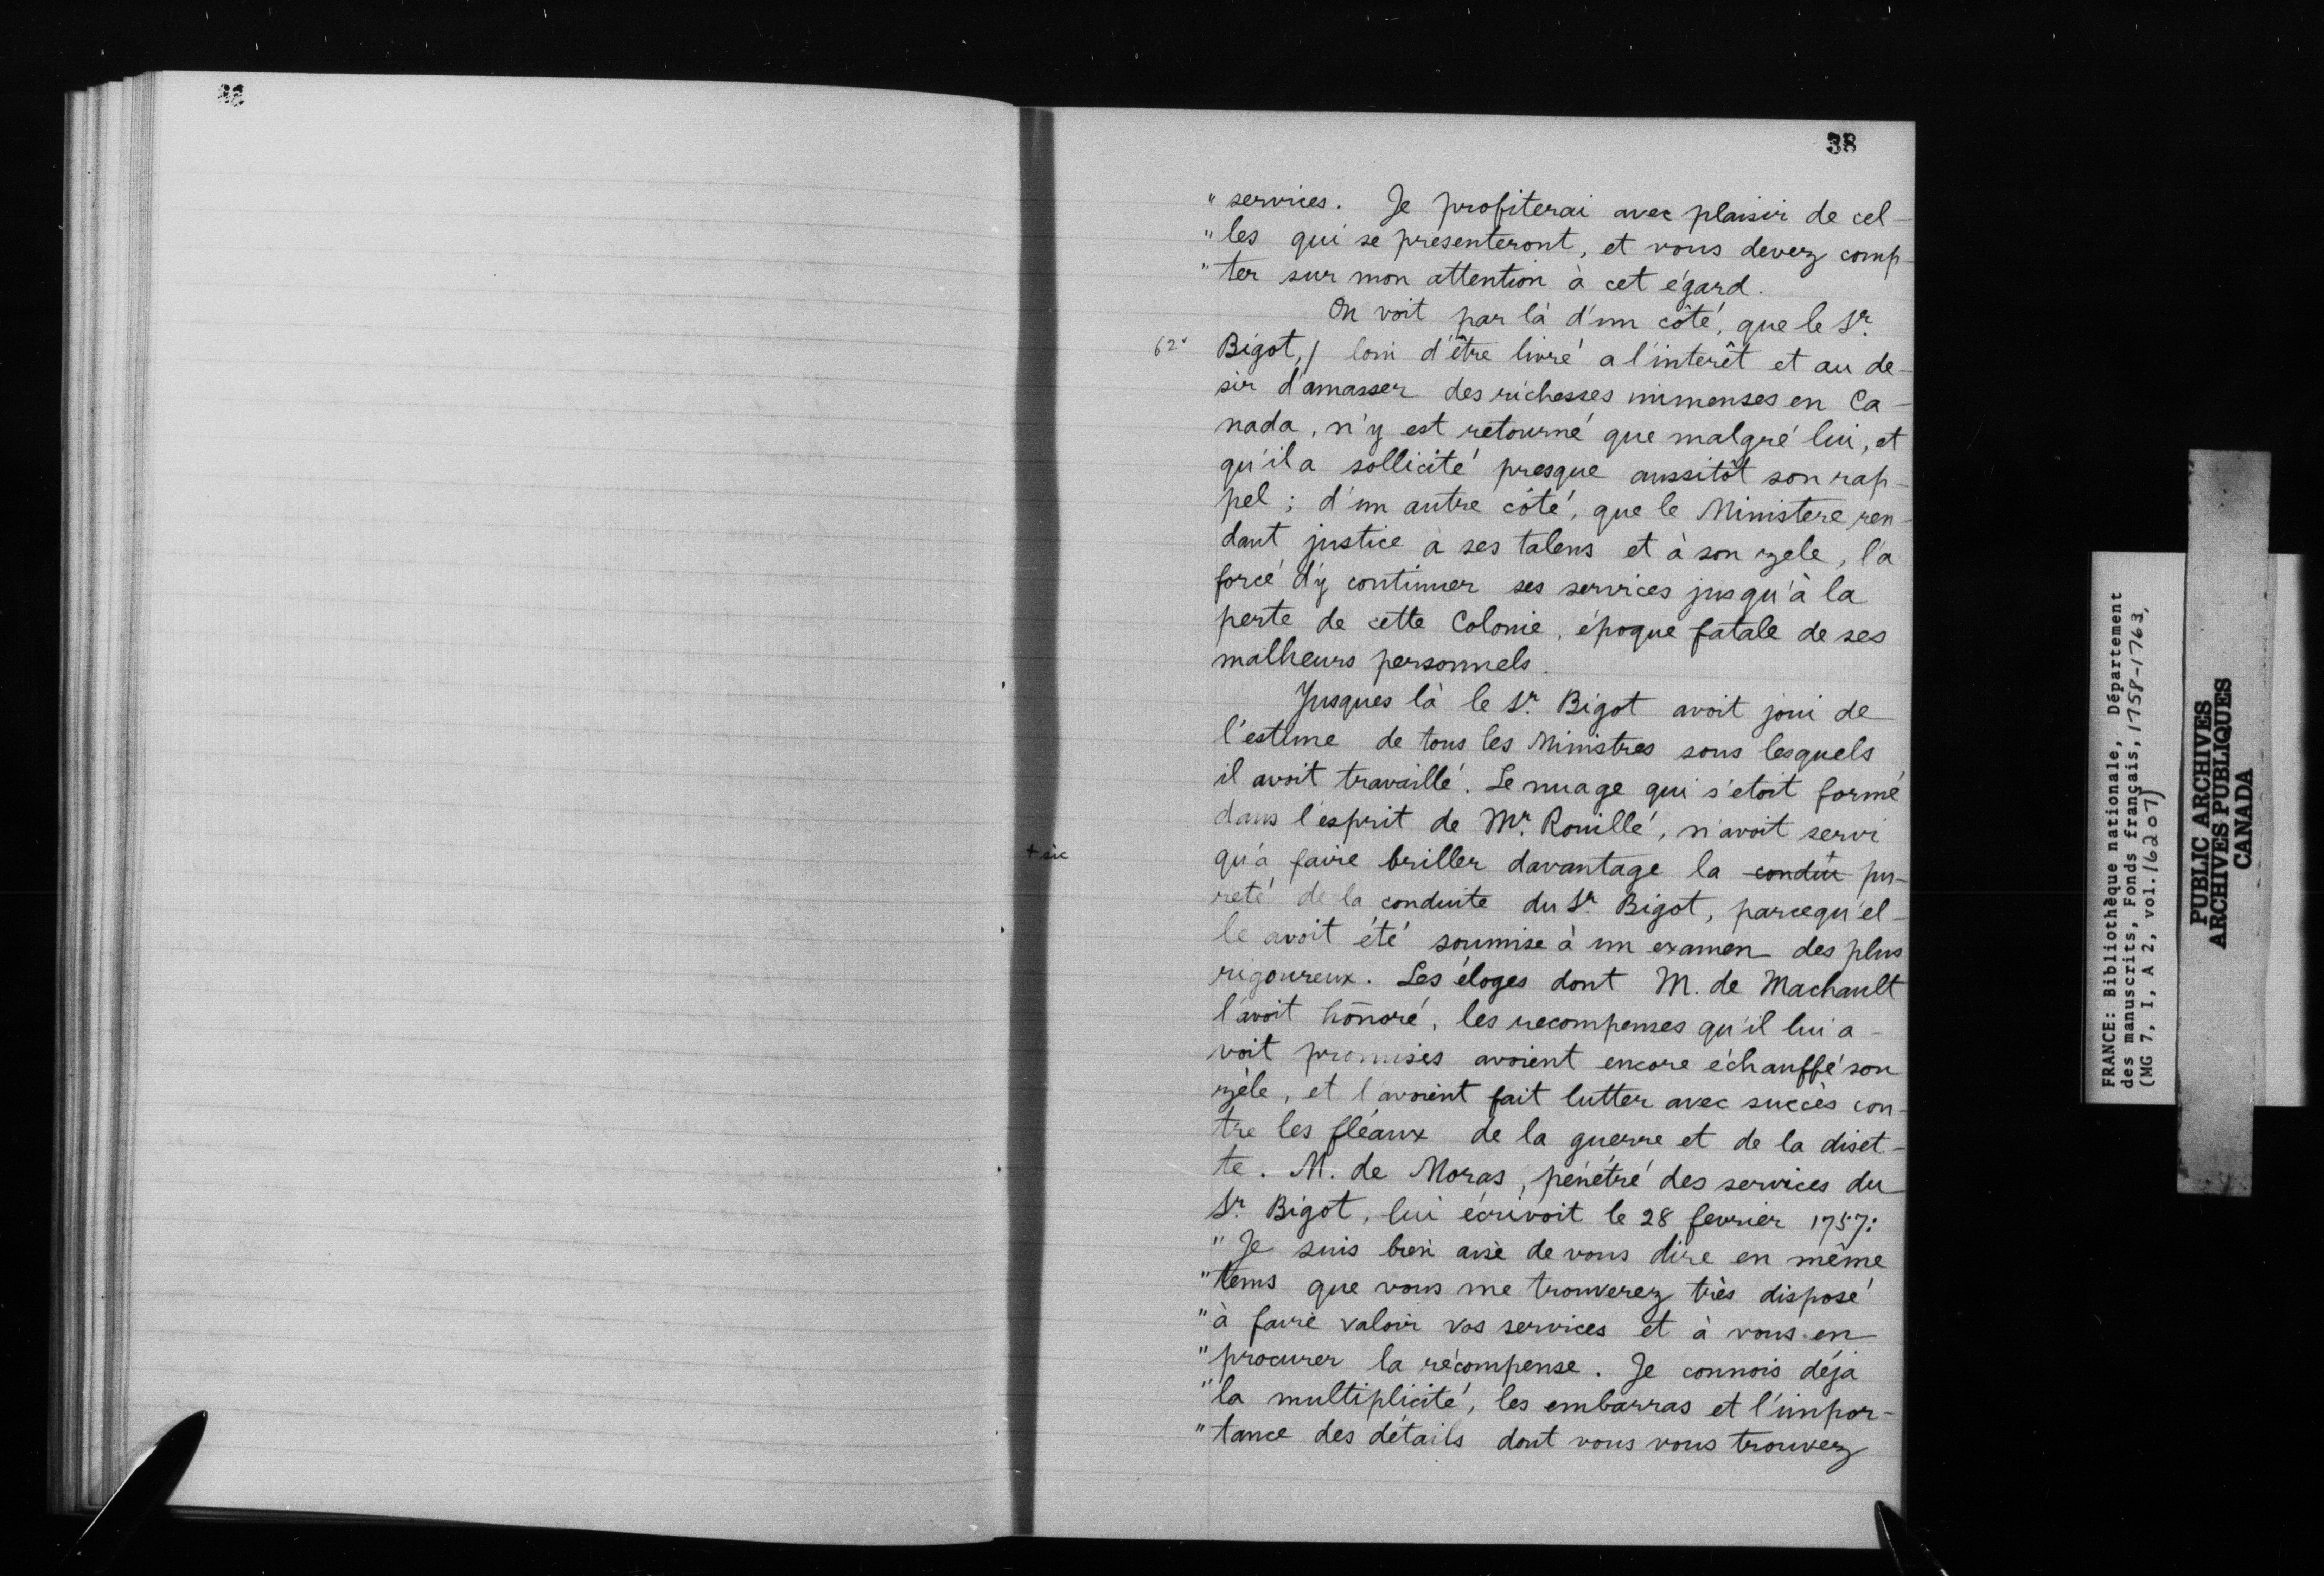 38
" services. Je profiterai avec plaisir de cel-
" les qui se présenteront, et vous devez comp-
" ter sur mon attention à cet égard.
On voit par là d'un côté, que le Sr.
62.
Bigot,/ loin d'être livré a l'interêt et au de-
sir d'amasser des richesses immenses en Ca-
nada, n'y est retourné que malgré lui, et
qu'il a sollicité presque aussitôt son rap-
pel ; d'un autre côté, que le Ministere ren-
dant justice à ses talens et à son zele, l'a
forcé d'y continuer ses services jusqu'à la
perte de cette Colonie, époque fatale de ses
malheurs personnels.
Jusques là le Sr. Bigot avoit joui de
l'estime de tous les Ministres sous lesquels
il avoit travaillé. Le nuage qui s'etoit formé
dans l'esprit de Mr. Rouillé, n'avoit servi
+ sic
qu'à faire briller davantage la conduit + pu-
reté de la conduite du Sr. Bigot, parcequ'el-
le avoit été soumise à un examen des plus
rigoureux. Les éloges dont M. de Machault
l'avoit hōnoré, les recompenses qu'il lui a-
voit promises avoient encore échauffé son
zèle, et l'avoient fait lutter avec succès con-
tre les fléaux de la guerre et de la diset-
te. M. de Moras, pénétré des services du
Sr. Bigot, lui écrivoit le 28 fevrier 1757:
" Je suis bien aise de vous dire en même
" tems que vous me trouverez très disposé
" à faire valoir vos services et à vous en
" procurer la récompense. Je connois déja
" la multiplicité, les embarras et l'impor-
" tance des détails dont vous vous trouvez
FRANCE: Bibliothèque nationale, Département
des manuscrits, Fonds français, 1758-1763,
(MG 7, I, A 2, vol. 16207)
PUBLIC ARCHIVES
ARCHIVES PUBLIQUES
CANADA